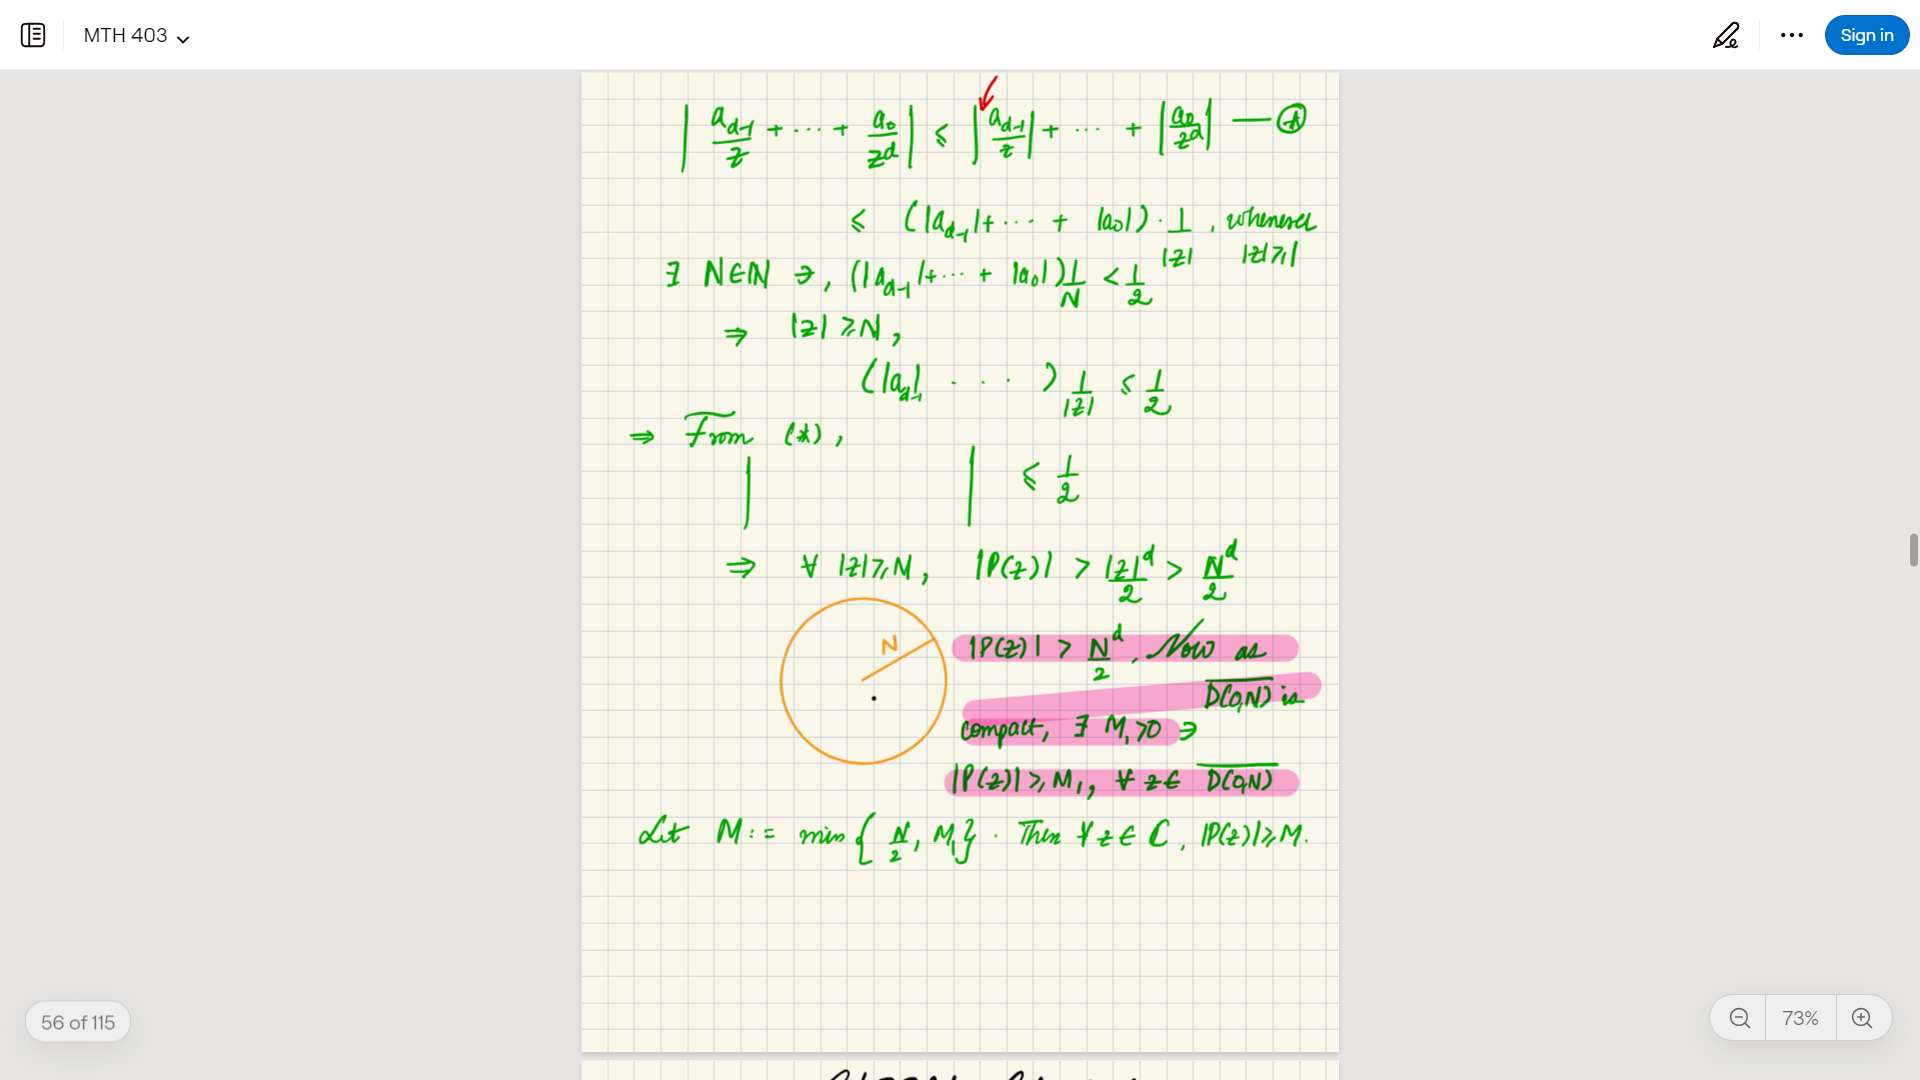 MTH 403
Sign in
| a_{d-1}/z + ··· + a_0/z^d | ≤ | a_{d-1}/z | + ··· + | a_0/z^d | — ⊛
≤ (|a_{d-1}| + ··· + |a_0|) · 1/|z| , whenever |z| ≥ 1
∃ N ∈ ℕ ∋, (|a_{d-1}| + ··· + |a_0|) 1/N < 1/2
⇒ |z| ≥ N,
(|a_{d-1}| · · · ) 1/|z| ≤ 1/2
⇒ From (*),
| | ≤ 1/2
⇒ ∀ |z| ≥ N, |P(z)| > |z|^d/2 > N^d/2
N
|P(z)| > N^d/2 , Now as
\overline{D(0,N)} is
compact, ∃ M_1 > 0 ∋
|P(z)| ≥ M_1, ∀ z ∈ \overline{D(0,N)}
Let M := min { N/2, M_1 } . Then ∀ z ∈ ℂ, |P(z)| ≥ M.
56 of 115
73%